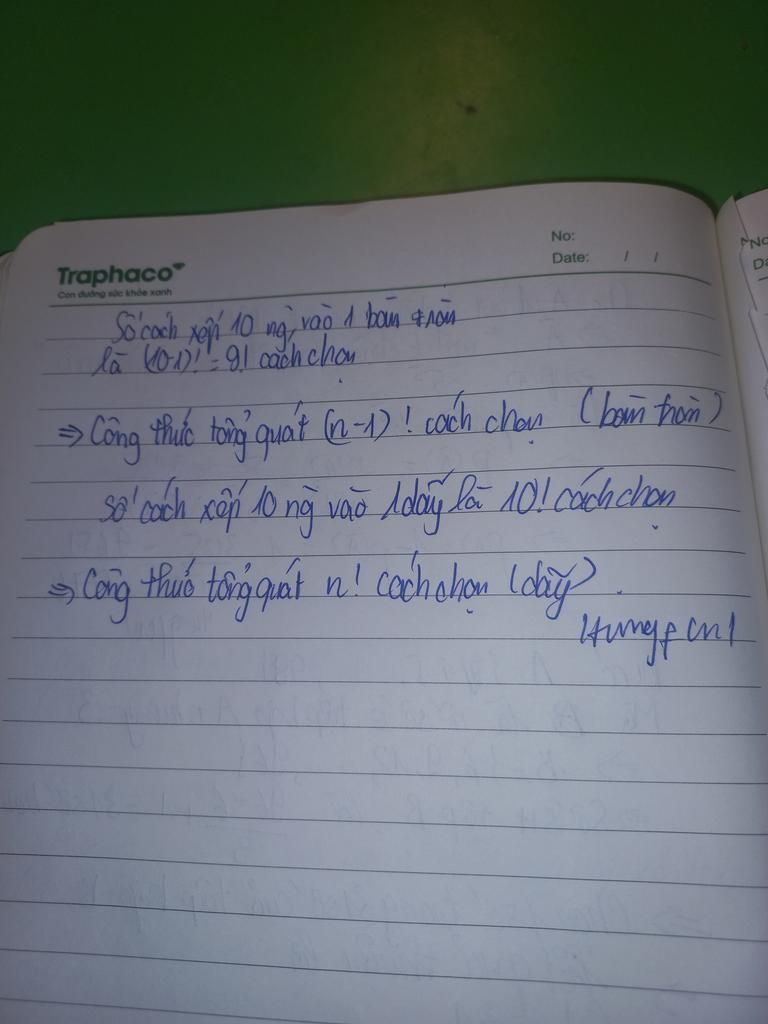 Traphaco
Con đường sức khỏe xanh
No:
Date: / /
Số cách xếp 10 ng vào 1 bàn tròn
là (10-1)! = 9! cách chọn
⇒ Công thức tổng quát (n-1)! cách chọn (bàn tròn)
số cách xếp 10 ng vào 1 dãy là 10! cách chọn
⇒ Công thức tổng quát n! cách chọn (dãy).